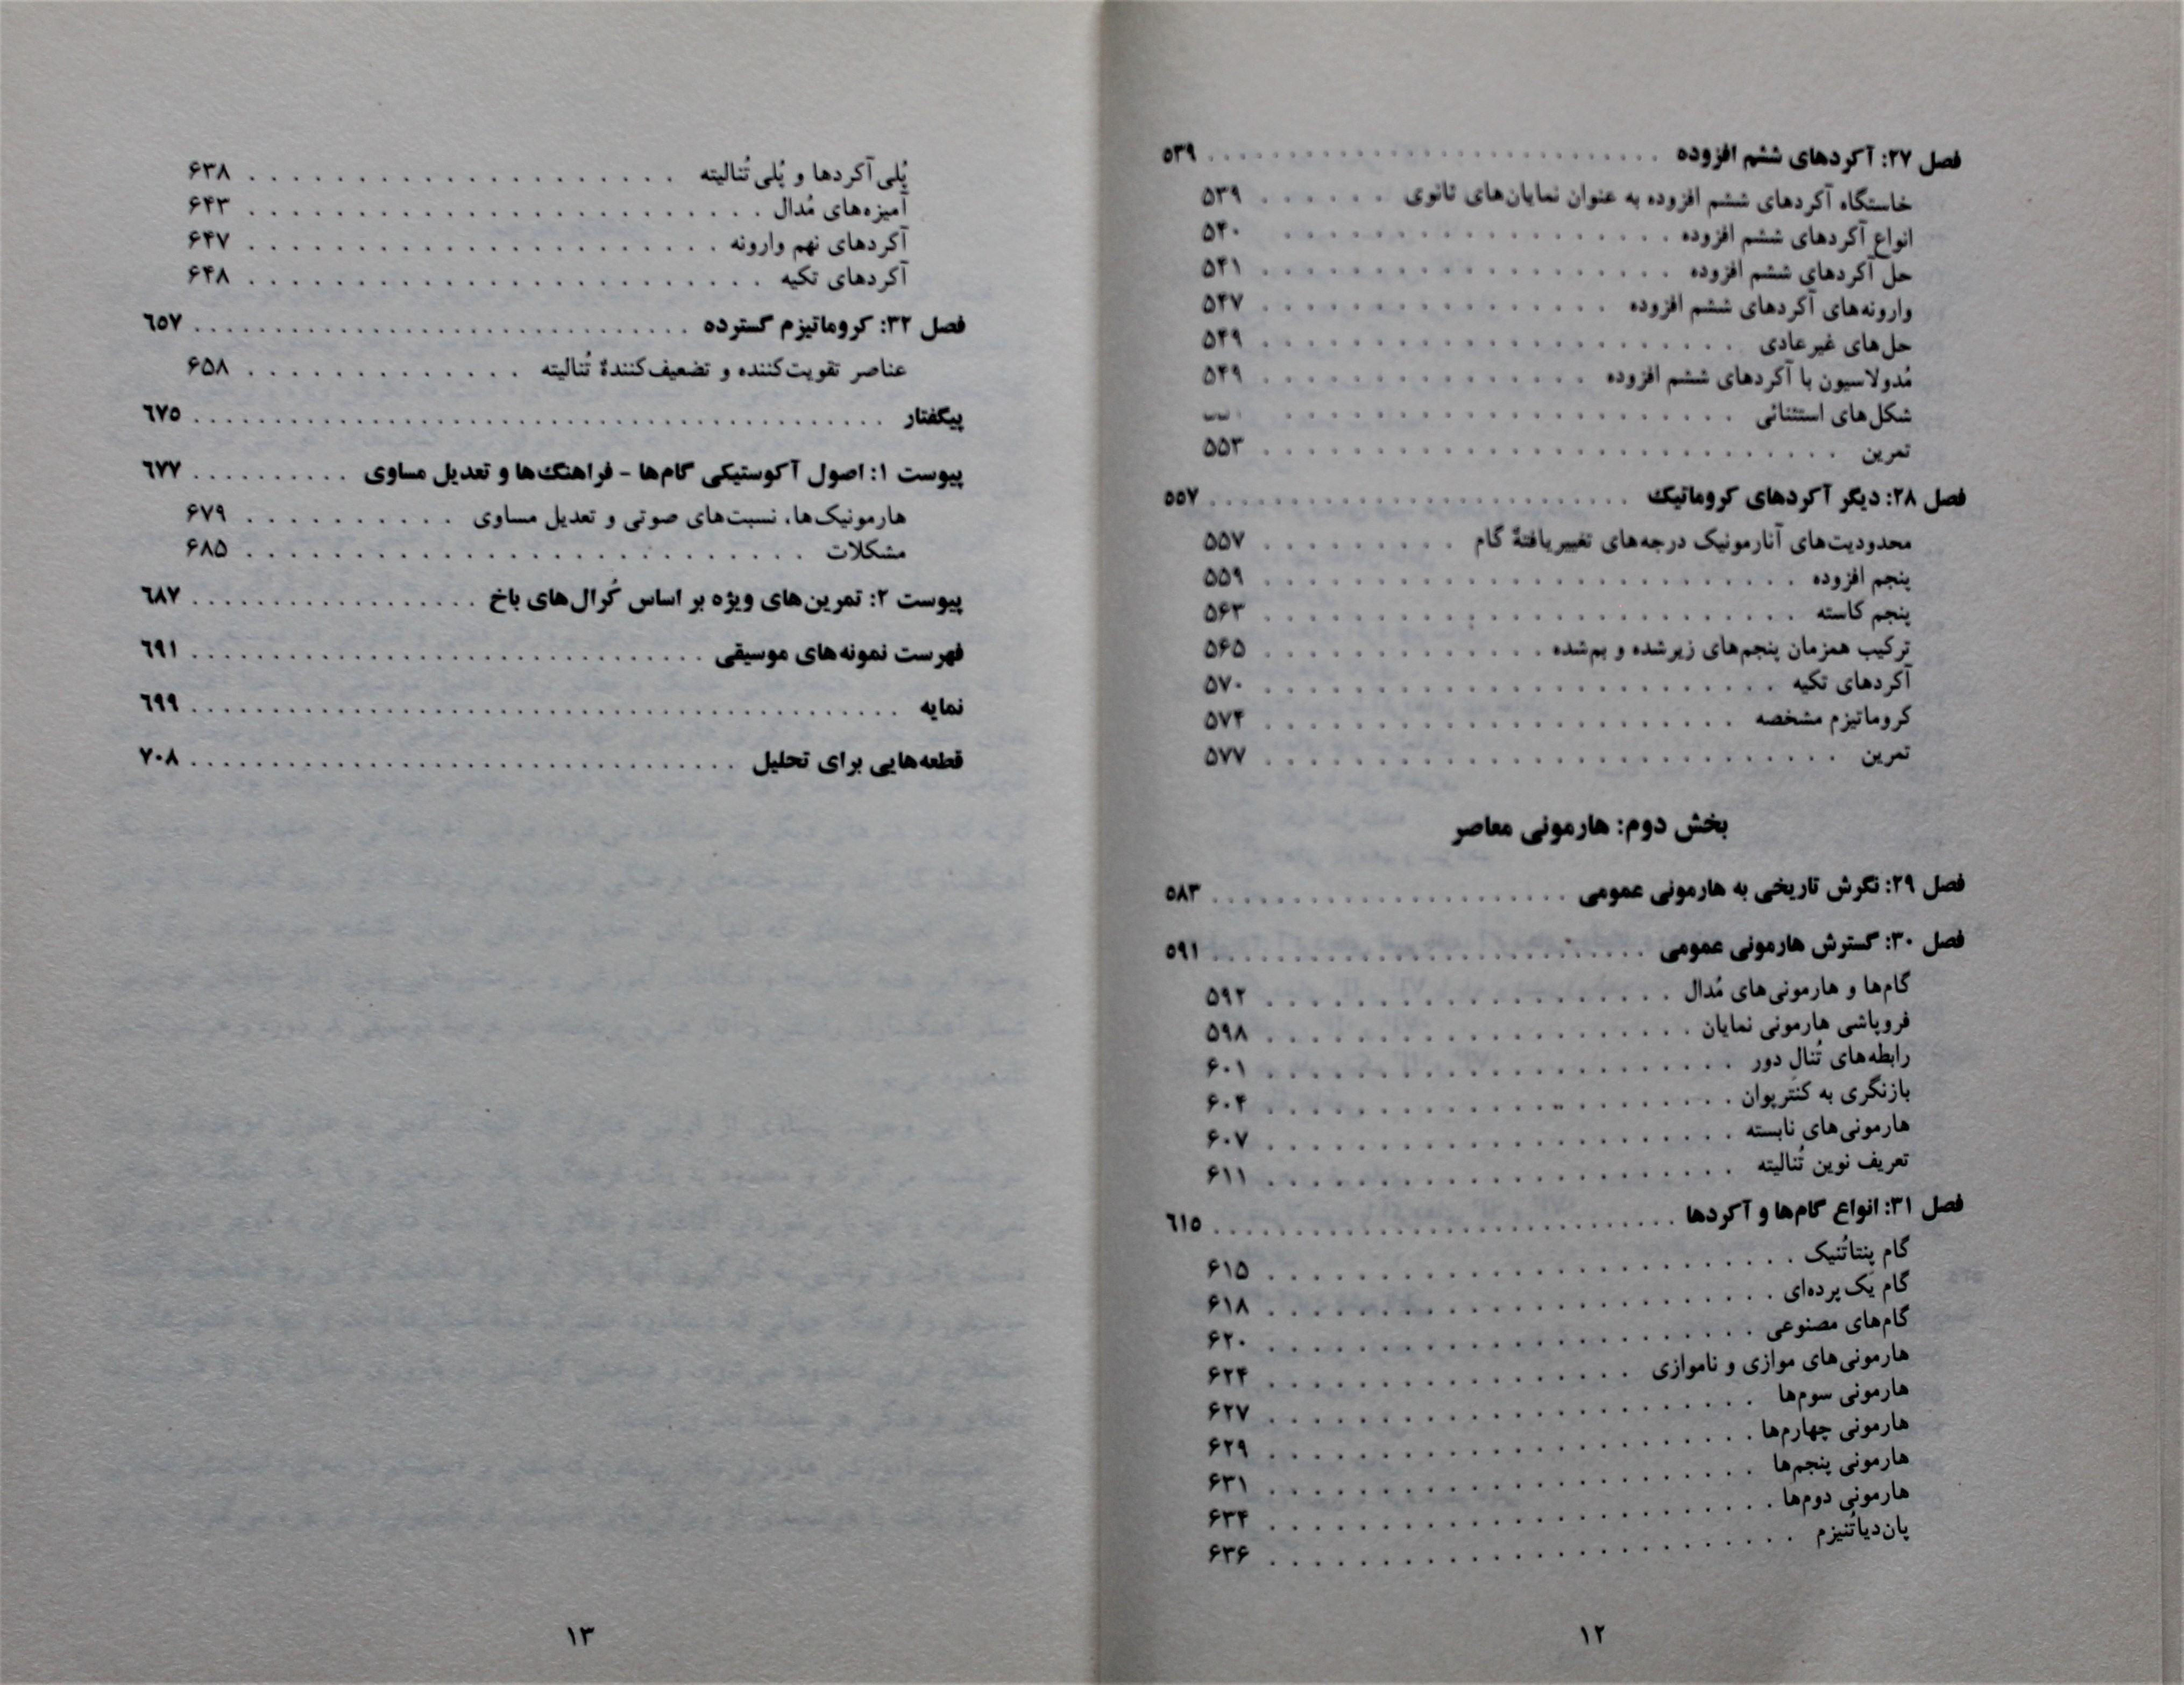 فصل ۲۷: آکردهای ششم افزوده . . . . . ۵۳۹
خاستگاه آکردهای ششم افزوده به عنوان نمایان‌های ثانوی . . . . . ۵۳۹
انواع آکردهای ششم افزوده . . . . . ۵۴۰
حل آکردهای ششم افزوده . . . . . ۵۴۱
وارونه‌های آکردهای ششم افزوده . . . . . ۵۴۷
حل‌های غیرعادی . . . . . ۵۴۹
مُدولاسیون با آکردهای ششم افزوده . . . . . ۵۴۹
شکل‌های استثنائی . . . . .
تمرین . . . . . ۵۵۳
فصل ۲۸: دیگر آکردهای کروماتیک . . . . . ۵۵۷
محدودیت‌های آنارمونیک درجه‌های تغییریافتهٔ گام . . . . . ۵۵۷
پنجم افزوده . . . . . ۵۵۹
پنجم کاسته . . . . . ۵۶۳
ترکیب همزمان پنجم‌های زیرشده و بم‌شده . . . . . ۵۶۵
آکردهای تکیه . . . . . ۵۷۰
کروماتیزم مشخصه . . . . . ۵۷۴
تمرین . . . . . ۵۷۷
بخش دوم: هارمونی معاصر
فصل ۲۹: نگرش تاریخی به هارمونی عمومی . . . . . ۵۸۳
فصل ۳۰: گسترش هارمونی عمومی . . . . . ۵۹۱
گام‌ها و هارمونی‌های مُدال . . . . . ۵۹۲
فروپاشی هارمونی نمایان . . . . . ۵۹۸
رابطه‌های تُنالِ دور . . . . . ۶۰۱
بازنگری به کنترپوان . . . . . ۶۰۴
هارمونی‌های نابسته . . . . . ۶۰۷
تعریف نوین تُنالیته . . . . . ۶۱۱
فصل ۳۱: انواع گام‌ها و آکردها . . . . . ۶۱۵
گام پنتاتُنیک . . . . . ۶۱۵
گام یک‌پرده‌ای . . . . . ۶۱۸
گام‌های مصنوعی . . . . . ۶۲۰
هارمونی‌های موازی و ناموازی . . . . . ۶۲۴
هارمونی سوم‌ها . . . . . ۶۲۷
هارمونی چهارم‌ها . . . . . ۶۲۹
هارمونی پنجم‌ها . . . . . ۶۳۱
هارمونی دوم‌ها . . . . . ۶۳۴
پان‌دیاتُنیزم . . . . . ۶۳۶
۱۲
پُلی‌آکردها و پُلی‌تُنالیته . . . . . ۶۳۸
آمیزه‌های مُدال . . . . . ۶۴۳
آکردهای نهم وارونه . . . . . ۶۴۷
آکردهای تکیه . . . . . ۶۴۸
فصل ۳۲: کروماتیزم گسترده . . . . . ۶۵۷
عناصر تقویت‌کننده و تضعیف‌کنندهٔ تُنالیته . . . . . ۶۵۸
پیگفتار . . . . . ۶۷۵
پیوست ۱: اصول آکوستیکی گام‌ها - فراهنگ‌ها و تعدیل مساوی . . . . . ۶۷۷
هارمونیک‌ها، نسبت‌های صوتی و تعدیل مساوی . . . . . ۶۷۹
مشکلات . . . . . ۶۸۵
پیوست ۲: تمرین‌های ویژه بر اساس کُرال‌های باخ . . . . . ۶۸۷
فهرست نمونه‌های موسیقی . . . . . ۶۹۱
نمایه . . . . . ۶۹۹
قطعه‌هایی برای تحلیل . . . . . ۷۰۸
۱۳